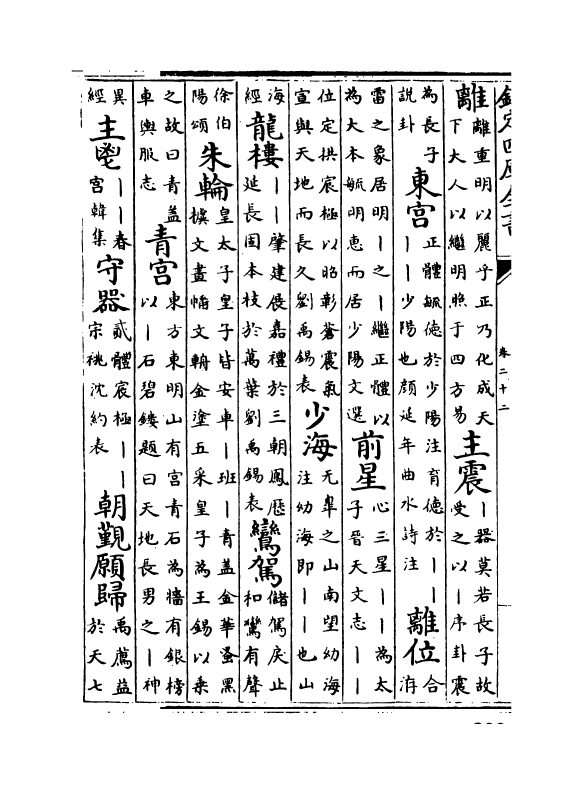 欽定四庫全書
卷二十二
離離重明以麗乎正乃化成天下大人以繼明照于四方易主震｜器莫若長子故受之以｜序卦震
為長子說卦東宮正體毓德於少陽注育德於｜｜｜｜少陽也顏延年曲水詩注離位合洊
雷之象居明｜之｜繼正體以為大本毓明恵而居少陽文選前星心三星｜｜為太子晉天文志｜｜
位定拱宸極以昭彰蒼震氣宣與天地而長久劉禹錫表少海无臯之山南望幼海注幼海即｜｜也山
海經龍樓｜｜肇建展嘉禮於三朝鳳歷延長固本枝於萬葉劉禹錫表鸞駕儲駕戾止和鸞有聲
徐伯陽頌朱輪皇太子皇子皆安車｜班｜青蓋金華蚤黑櫎文畫轓文輈金塗五采皇子為王錫以乘
之故曰青蓋車輿服志青宮東方東明山有宮青石為牆有銀榜以｜石碧鏤題曰天地長男之｜神
異經主鬯｜｜春宮韓集守器貳體宸極｜｜宗祧沈約表朝覲願歸禹薦益於天七